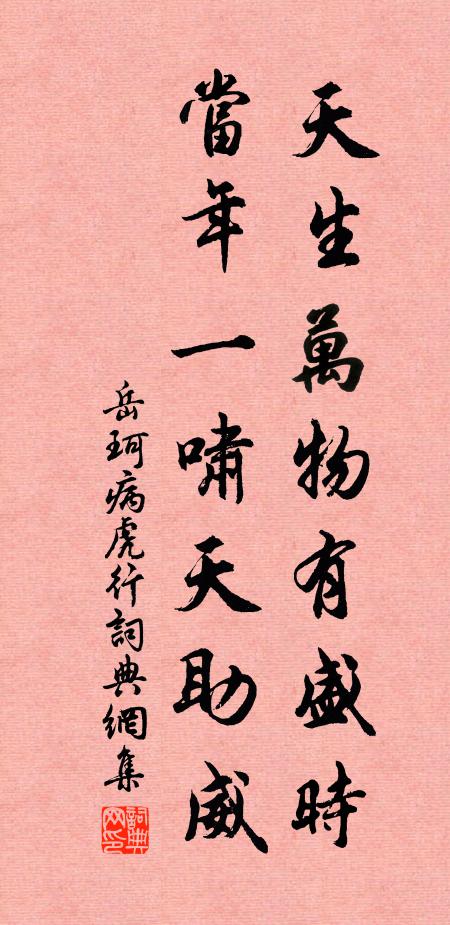 天生萬物有盛時
當年一嘯天助威
岳珂病虎行詞典網集
詞典網印